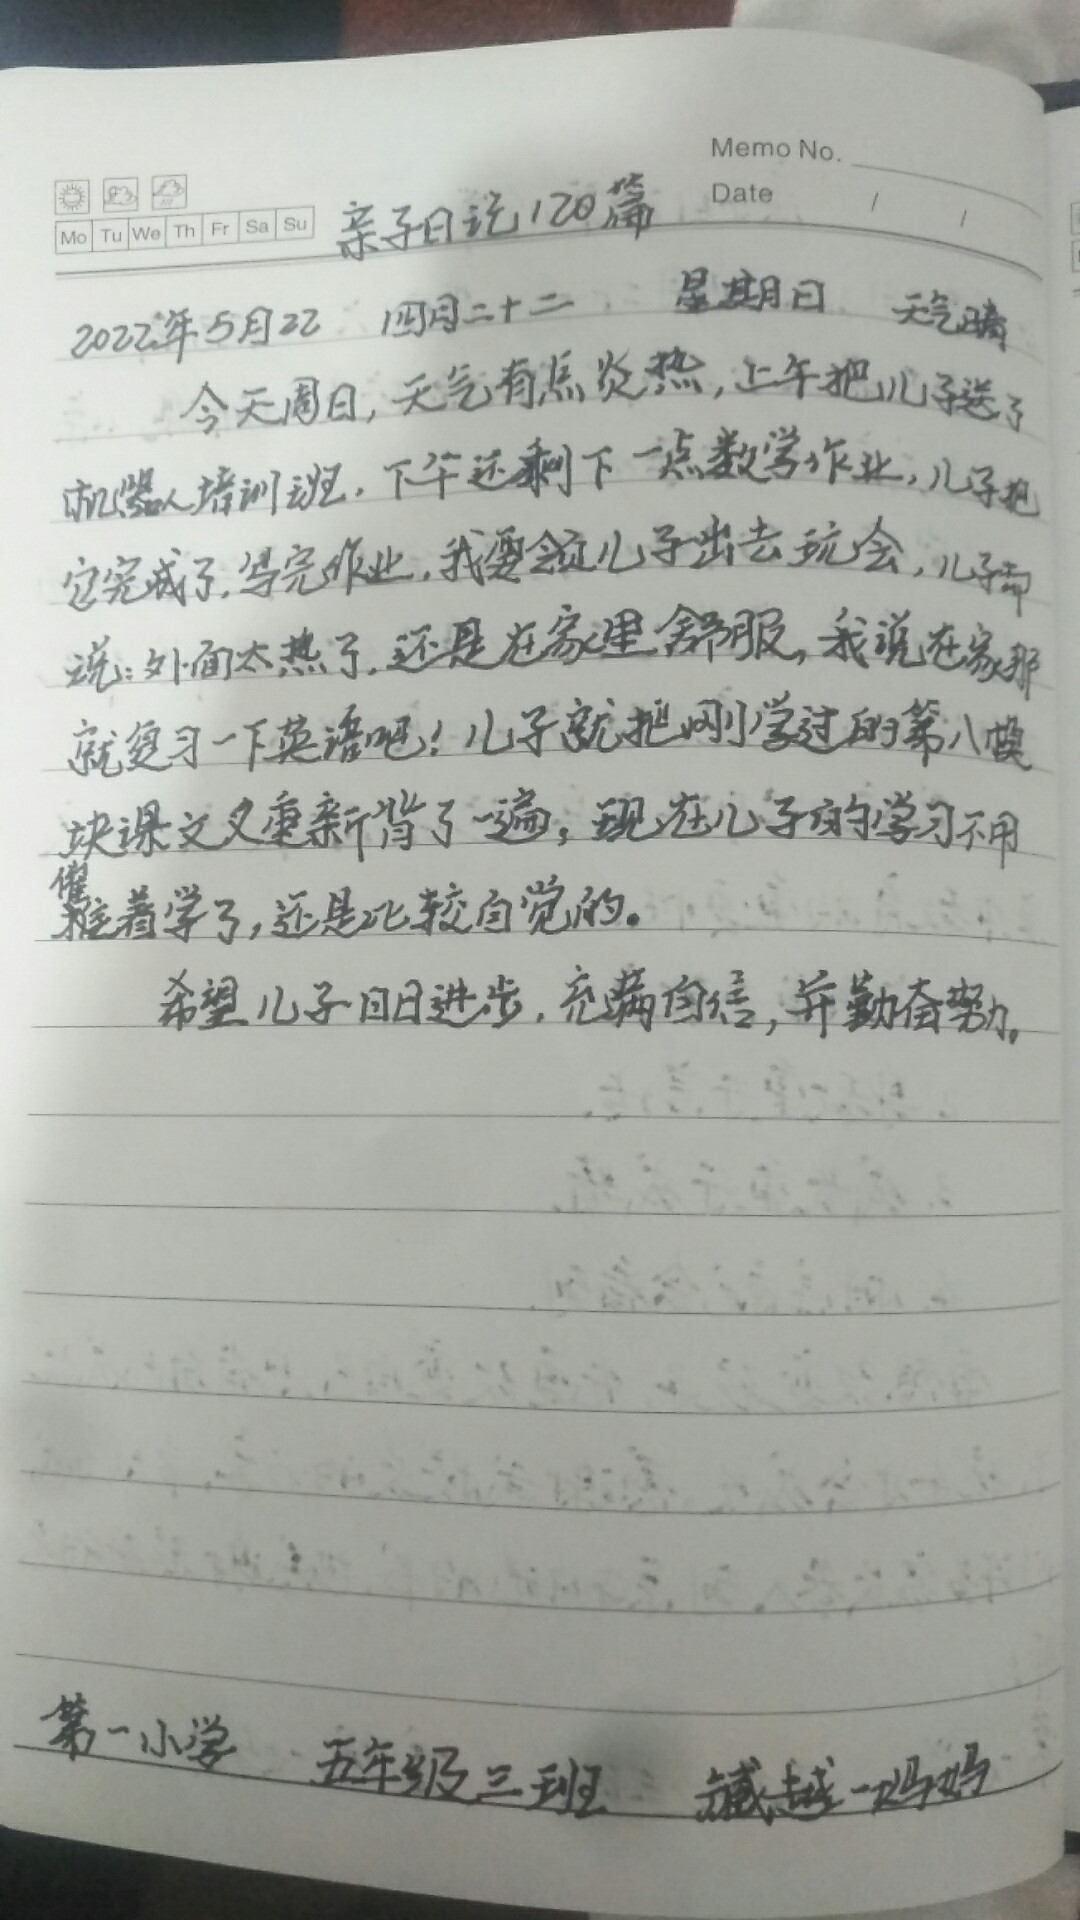 Memo No.
Date / /
Mo Tu We Th Fr Sa Su
亲子日记120篇
2022年5月22 四月二十二 星期日 天气晴
今天周日,天气有点炎热,上午把儿子送了
机器人培训班,下午还剩下一点数学作业,儿子把
它完成了,写完作业,我要领儿子出去玩会,儿子却
说:外面太热了,还是在家里舒服,我说在家那
就复习一下英语吧!儿子就把刚学过的第八模
块课文又重新背了一遍,现在儿子的学习不用
催着学了,还是比较自觉的。
希望儿子日日进步,充满自信,并勤奋努力。
第一小学 五年级三班 臧越一妈妈